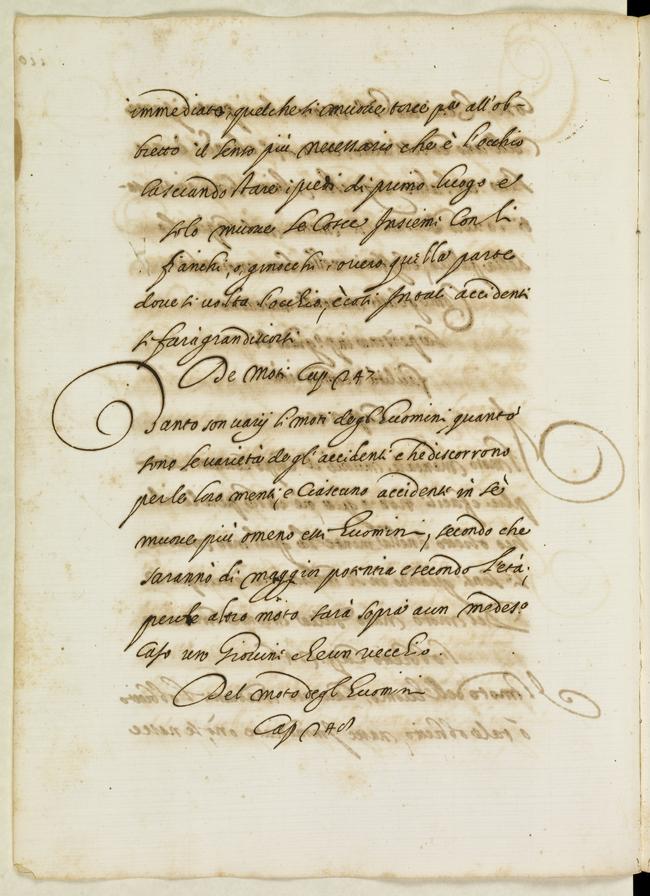 immediato, quel che si muove torce p.a all'ob-
bietto il senso più necessario che è l'occhio
lasciando stare i piedi di primo luogo e
solo muove le Cosce Insiemi Con li
fianchi, o, ginocchi, overo quella parte
dove si volta l'occhio, e così In tali accidenti
si farà gran discorsi
De Moti Cap. 247
Tanto son varij li moti degl'Huomini, quanto
sono le varietà degl'accidenti che discorrono
per le loro menti, e Ciascuno accidenti in sè
muove più o meno essi Huomini, secondo che
saranno di maggior potentia e secondo l'età;
perche altro moto sarà sopra a un medes.o
Caso uno Giovini che un vecchio.
Del moto degl'Huomini
Cap 248